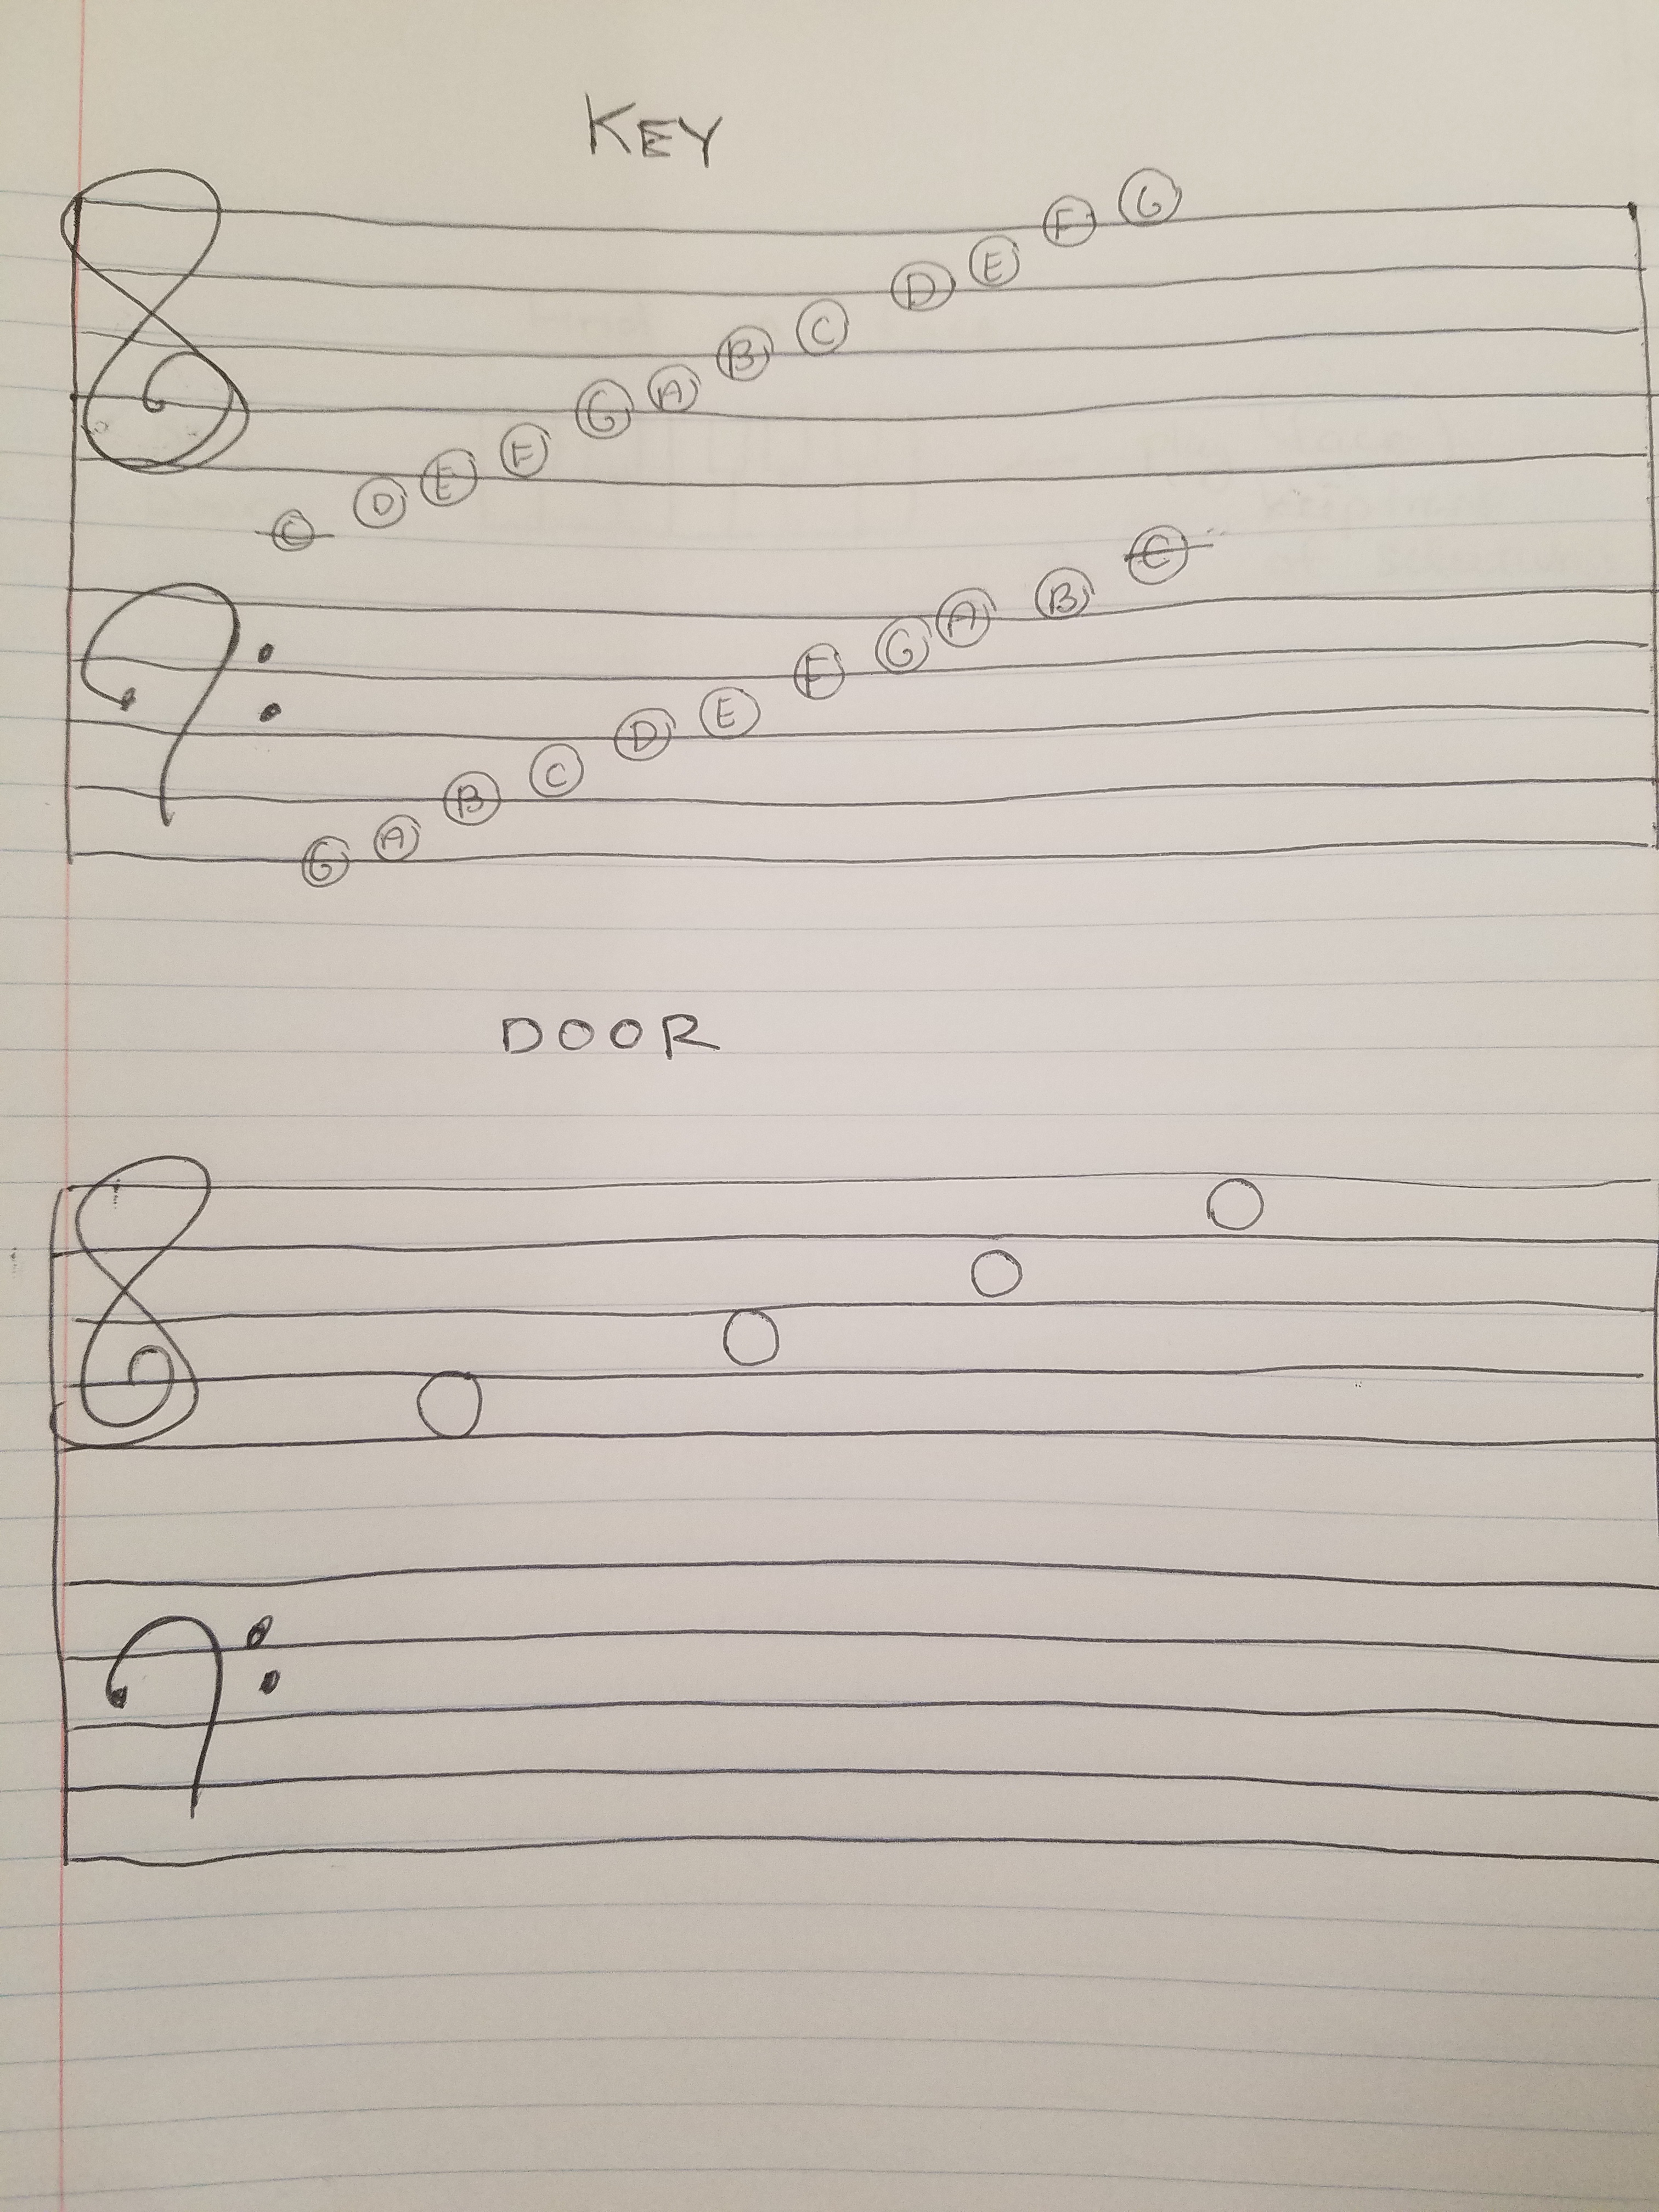 KEY
C D E F G A B C D E F G
G A B C D E F G A B C
DOOR